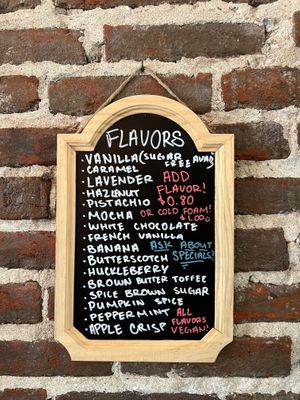 FLAVORS
· VANILLA (SUGAR FREE AVAIL)
· CARAMEL
· LAVENDER ADD
· HAZLNUT FLAVOR!
· PISTACHIO $0.80
· MOCHA OR COLD FOAM!
· WHITE CHOCOLATE $1.00
· FRENCH VANILLA
· BANANA ASK ABOUT
· BUTTERSCOTCH SPECIALS!
· HUCKLEBERRY
· BROWN BUTTER TOFFEE
· SPICE BROWN SUGAR
· PUMPKIN SPICE
· PEPPERMINT ALL
· APPLE CRISP FLAVORS
VEGAN!